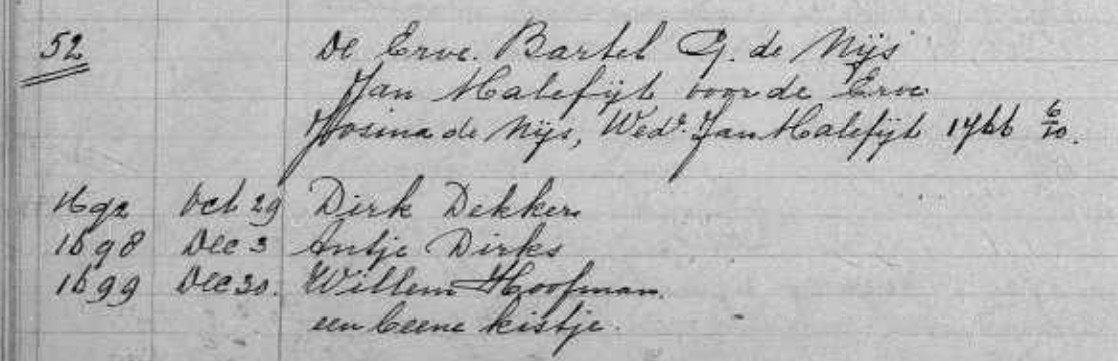 52 De Erve. Bartel G. de Nijs
Jan Malefijt voor de Erve
Josina de Nijs, Wedᵉ. Jan Malefijt 1766 6/10.
1692 Oct 29 Dirk Dekker
1698 Dec 3 Antje Dirks
1699 Dec 30. Willem Hoofman.
een beene kistje.